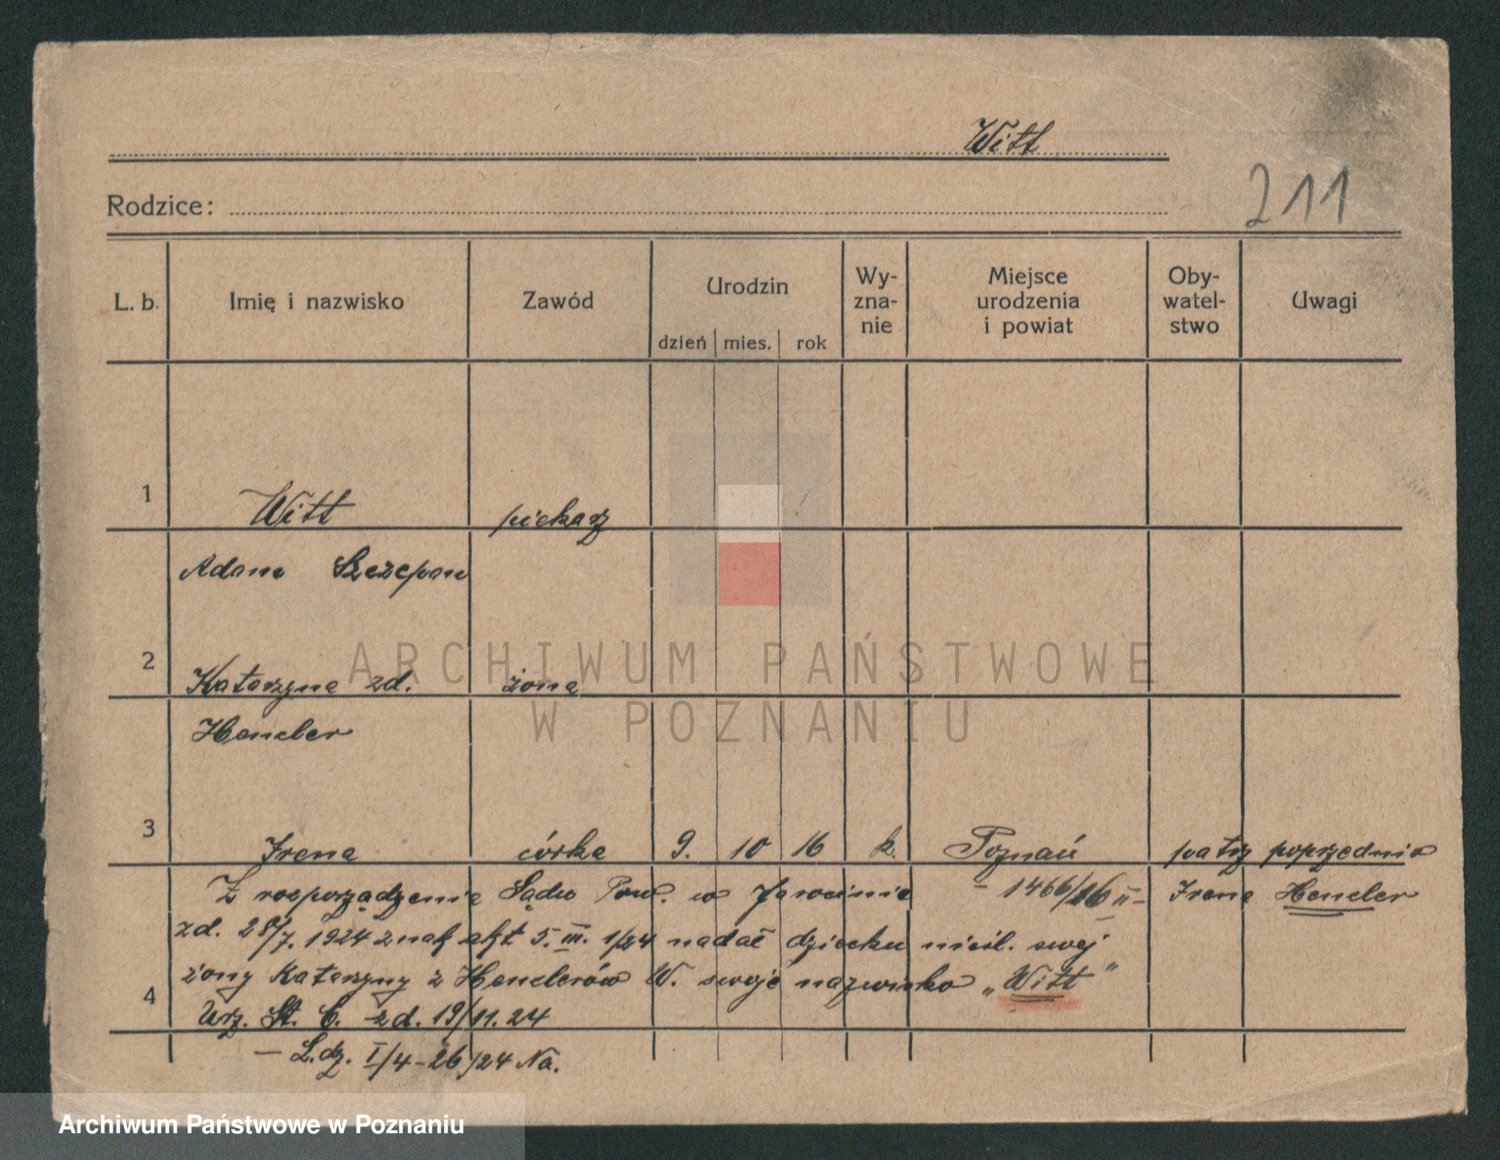 Witt
211
Rodzice:
L. b. Imię i nazwisko Zawód Urodzin Wy-zna-nie Miejsce urodzenia i powiat Oby-watel-stwo Uwagi
dzień mies. rok
1 Witt piekarz
Adam Szczepan
2 Katarzyna zd. żona
Hencler
3 Irena córka 9. 10 16 k. Poznań patrz poprzednio
- 1466/16 II - Irena Hencler
Z rozporządzenia Sądu Pow. w Jarocinie
zd. 28/7. 1924 znak akt 5. III. 1/24 nadał dziecku nieśl. swej
żony Katarzyny z Henclerów W. swoje nazwisko „Witt"
4 Urz. St. C. zd. 19/11. 24
- L.dz. I/4-26/24 Na.
ARCHIWUM PAŃSTWOWE
W POZNANIU
Archiwum Państwowe w Poznaniu